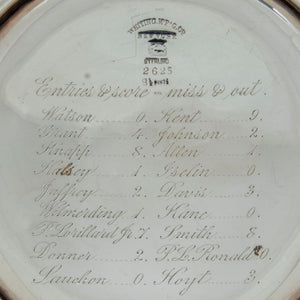 WHITING M'F'G CO
NEW YORK
STERLING
2625
Entries & score — miss & out.
Watson ...... 0. Kent ...... 9.
Grant ...... 4. Johnson ...... 2.
Knapp ...... 8. Allen ...... 1.
Halsey ...... 1. Iselin ...... 0.
Jaffray ...... 2. Davis ...... 3.
Wilmerding 1. Kane ...... 0.
P. Lorillard Jr. 7. Smith ...... 8.
Donner ...... 2. P. L. Ronald 0.
Sanchon ...... 0. Hoyt ...... 3.